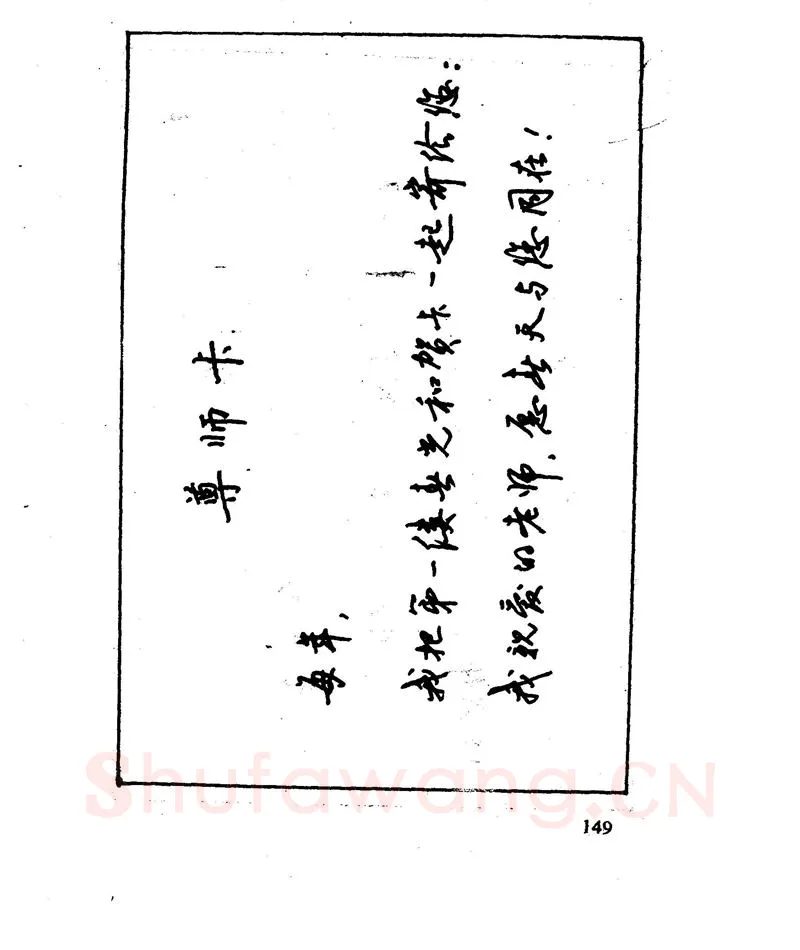 尊师卡
每年,
我把第一缕春光和贺卡一起寄给您:
我敬爱的老师,愿春天与您同在!
149
Shufawang.CN